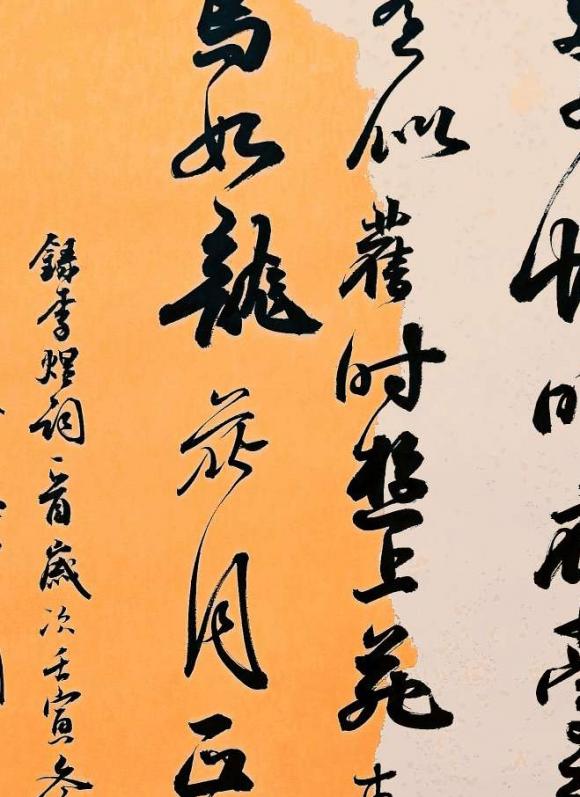 恨昨夜夢
還似舊時遊上苑
馬如龍花月正
錄李煜詞一首歲次壬寅冬